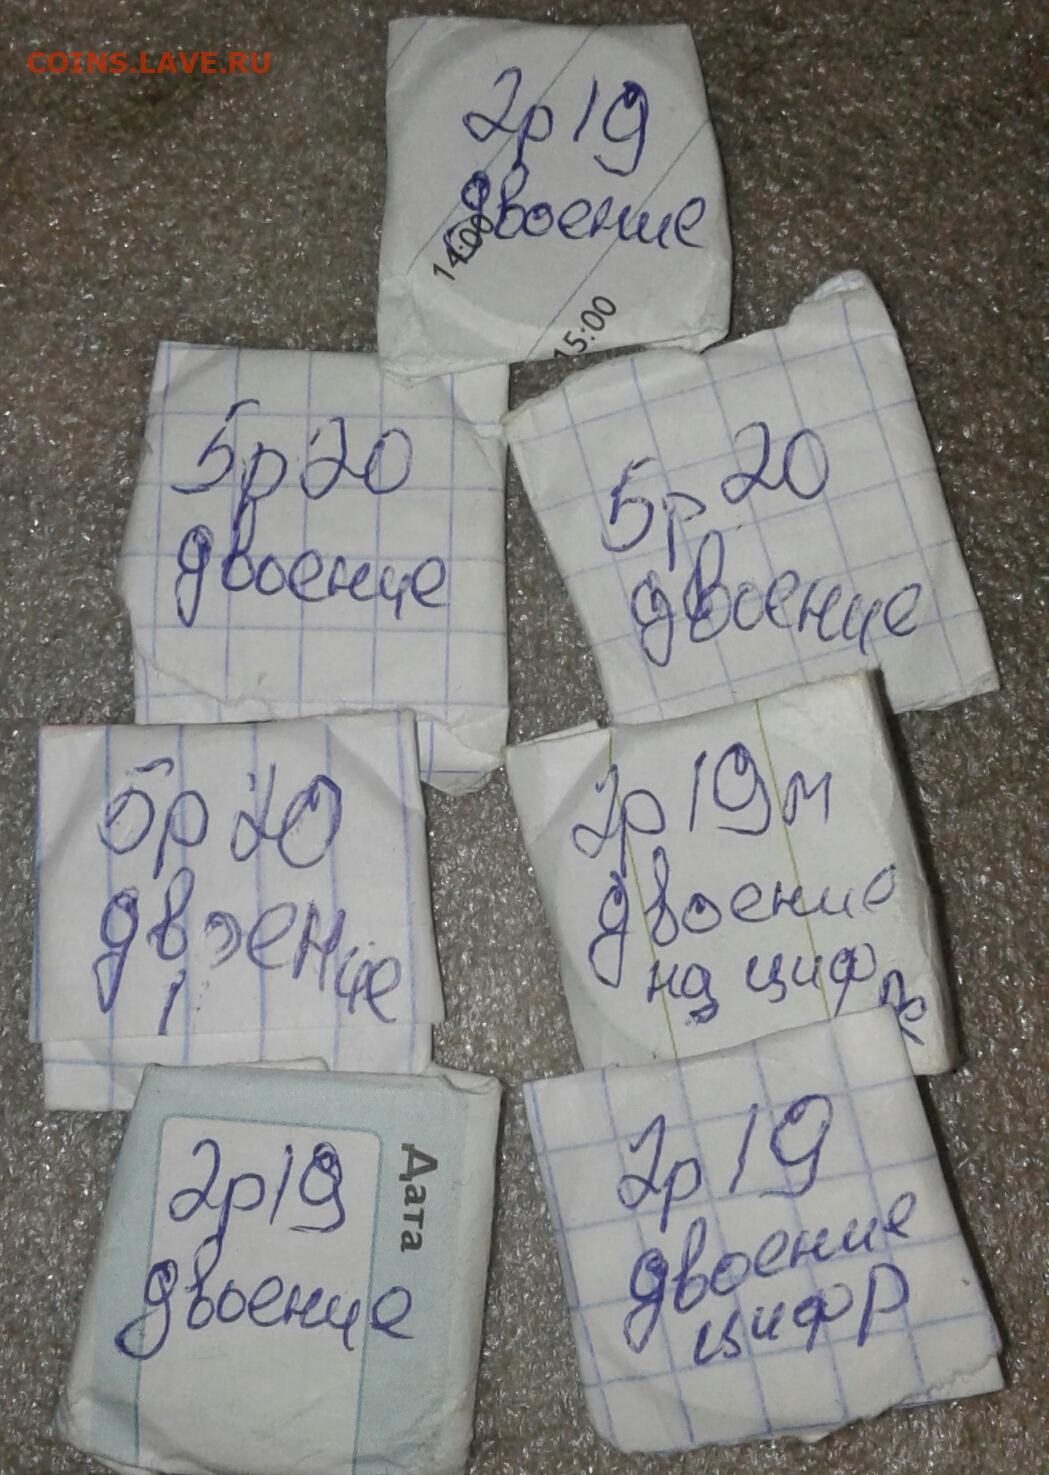 COINS.LAVE.RU
2р 19
двоение
14:00
15:00
5р 20
двоение
5р 20
двоение
5р 20
двоение
2р 19м
двоение
на цифре
2р 19
двоение
Дата
2р 19
двоение
цифр